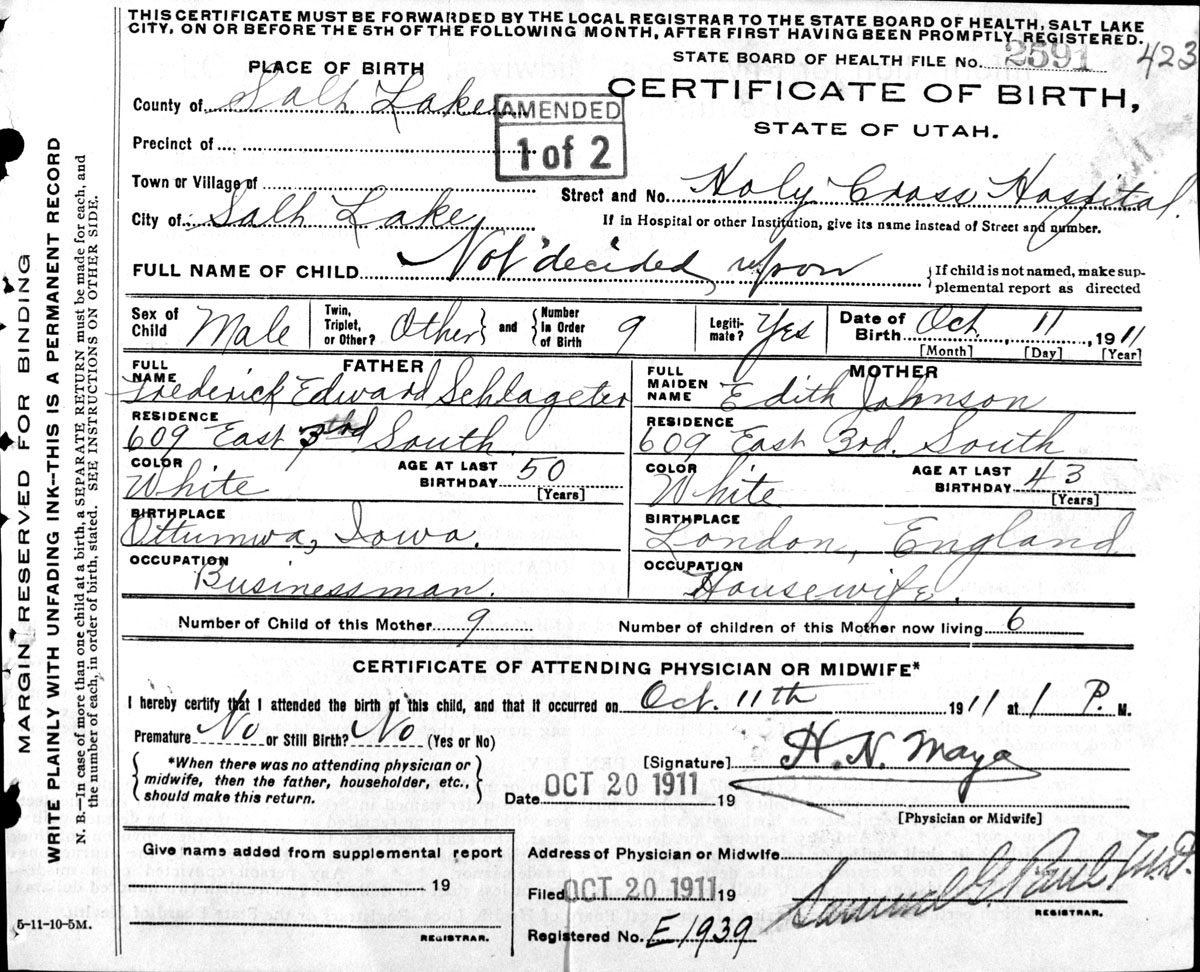 THIS CERTIFICATE MUST BE FORWARDED BY THE LOCAL REGISTRAR TO THE STATE BOARD OF HEALTH, SALT LAKE
CITY, ON OR BEFORE THE 5TH OF THE FOLLOWING MONTH, AFTER FIRST HAVING BEEN PROMPTLY REGISTERED.
STATE BOARD OF HEALTH FILE No. 2591 423
PLACE OF BIRTH
CERTIFICATE OF BIRTH,
STATE OF UTAH.
County of Salt Lake
AMENDED
1 of 2
Precinct of
Town or Village of
Street and No. Holy Cross Hospital.
City of Salt Lake
If in Hospital or other Institution, give its name instead of Street and number.
FULL NAME OF CHILD Not decided upon
If child is not named, make sup-
plemental report as directed
Sex of Child Male Twin, Triplet, or Other? Other and Number in Order of Birth 9 Legiti-mate? Yes Date of Birth Oct, 11, 1911
[Month] [Day] [Year]
FATHER
FULL NAME Frederick Edward Schlageter
RESIDENCE
609 East 3rd South
COLOR White AGE AT LAST BIRTHDAY 50 [Years]
BIRTHPLACE
Ottumwa, Iowa.
OCCUPATION
Businessman.
MOTHER
FULL MAIDEN NAME Edith Johnson
RESIDENCE
609 East 3rd. South
COLOR White AGE AT LAST BIRTHDAY 43 [Years]
BIRTHPLACE
London, England
OCCUPATION
Housewife.
Number of Child of this Mother 9 Number of children of this Mother now living 6
CERTIFICATE OF ATTENDING PHYSICIAN OR MIDWIFE*
I hereby certify that I attended the birth of this child, and that it occurred on Oct. 11th 1911 at 1 P. M.
Premature No or Still Birth? No (Yes or No)
*When there was no attending physician or
midwife, then the father, householder, etc.,
should make this return.
[Signature] H. N. Mayo
Date OCT 20 1911 19
[Physician or Midwife]
Give name added from supplemental report
19
REGISTRAR.
Address of Physician or Midwife
Filed OCT 20 1911 19
Samuel G. Paul, M.D.
REGISTRAR.
Registered No. E1939
5-11-10-5M.
MARGIN RESERVED FOR BINDING
WRITE PLAINLY WITH UNFADING INK--THIS IS A PERMANENT RECORD
N. B.--In case of more than one child at a birth, a SEPARATE RETURN must be made for each, and
the number of each, in order of birth, stated. SEE INSTRUCTIONS ON OTHER SIDE.